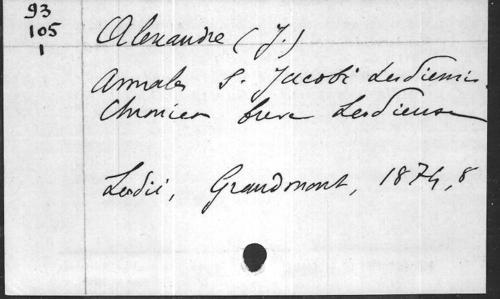 93
105
1
Alexandre (J.)
Annales S. Jacobi Leodiensis.
Chronicon breve Leodiense
Leodii, Grandmont, 1874, 8